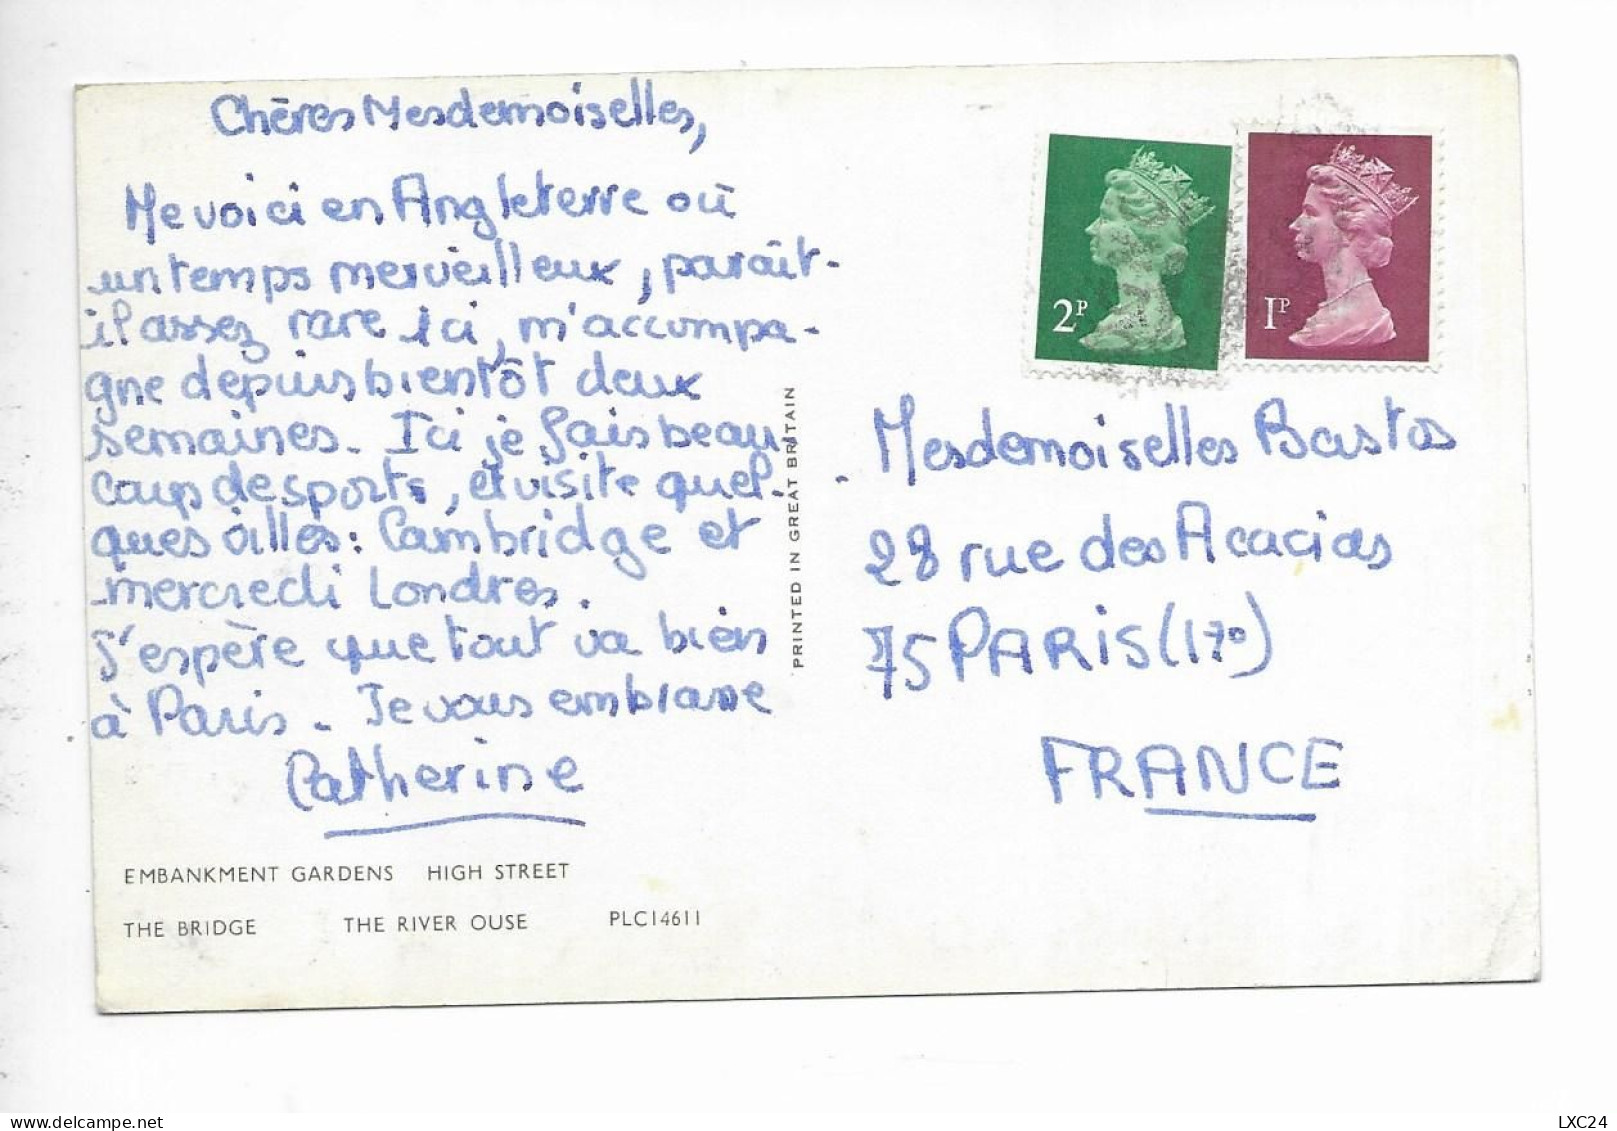 Chères Mesdemoiselles,
Me voici en Angleterre où
un temps merveilleux, paraît-
il assez rare ici, m'accompa-
gne depuis bientôt deux
semaines. Ici je fais beau-
coup de sports, et visite quel-
ques villes: Cambridge et
mercredi Londres.
J'espère que tout va bien
à Paris. Je vous embrasse
Catherine
EMBANKMENT GARDENS HIGH STREET
THE BRIDGE THE RIVER OUSE PLC14611
PRINTED IN GREAT BRITAIN
2P
1P
Mesdemoiselles Bastos
28 rue des Acacias
75 PARIS (17°)
FRANCE
LXC24